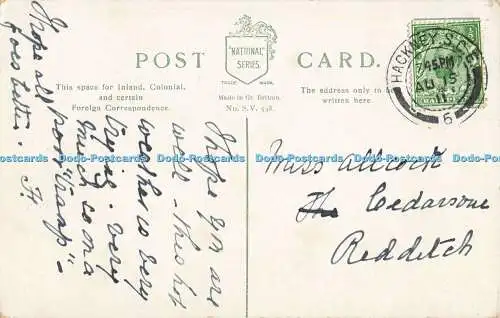 POST CARD.
"NATIONAL"
SERIES.
TRADE MARK.
This space for Inland, Colonial,
and certain
Foreign Correspondence.
Made in Gt. Britain.
No. S.V. 458.
The address only to be
written here.
HACKNEY S.O.
7.45PM
AU 15
11
6
I hope you are
well - This hot
weather is very
trying - very
much so on a
poor "tramp" -
I hope all
goes better.
Miss Allcock
The Cedars
Redditch
Dodo-Postcards Dodo-Postcards Dodo-Postcards Dodo-Postcards Dodo-Postcards Dodo-Postcards